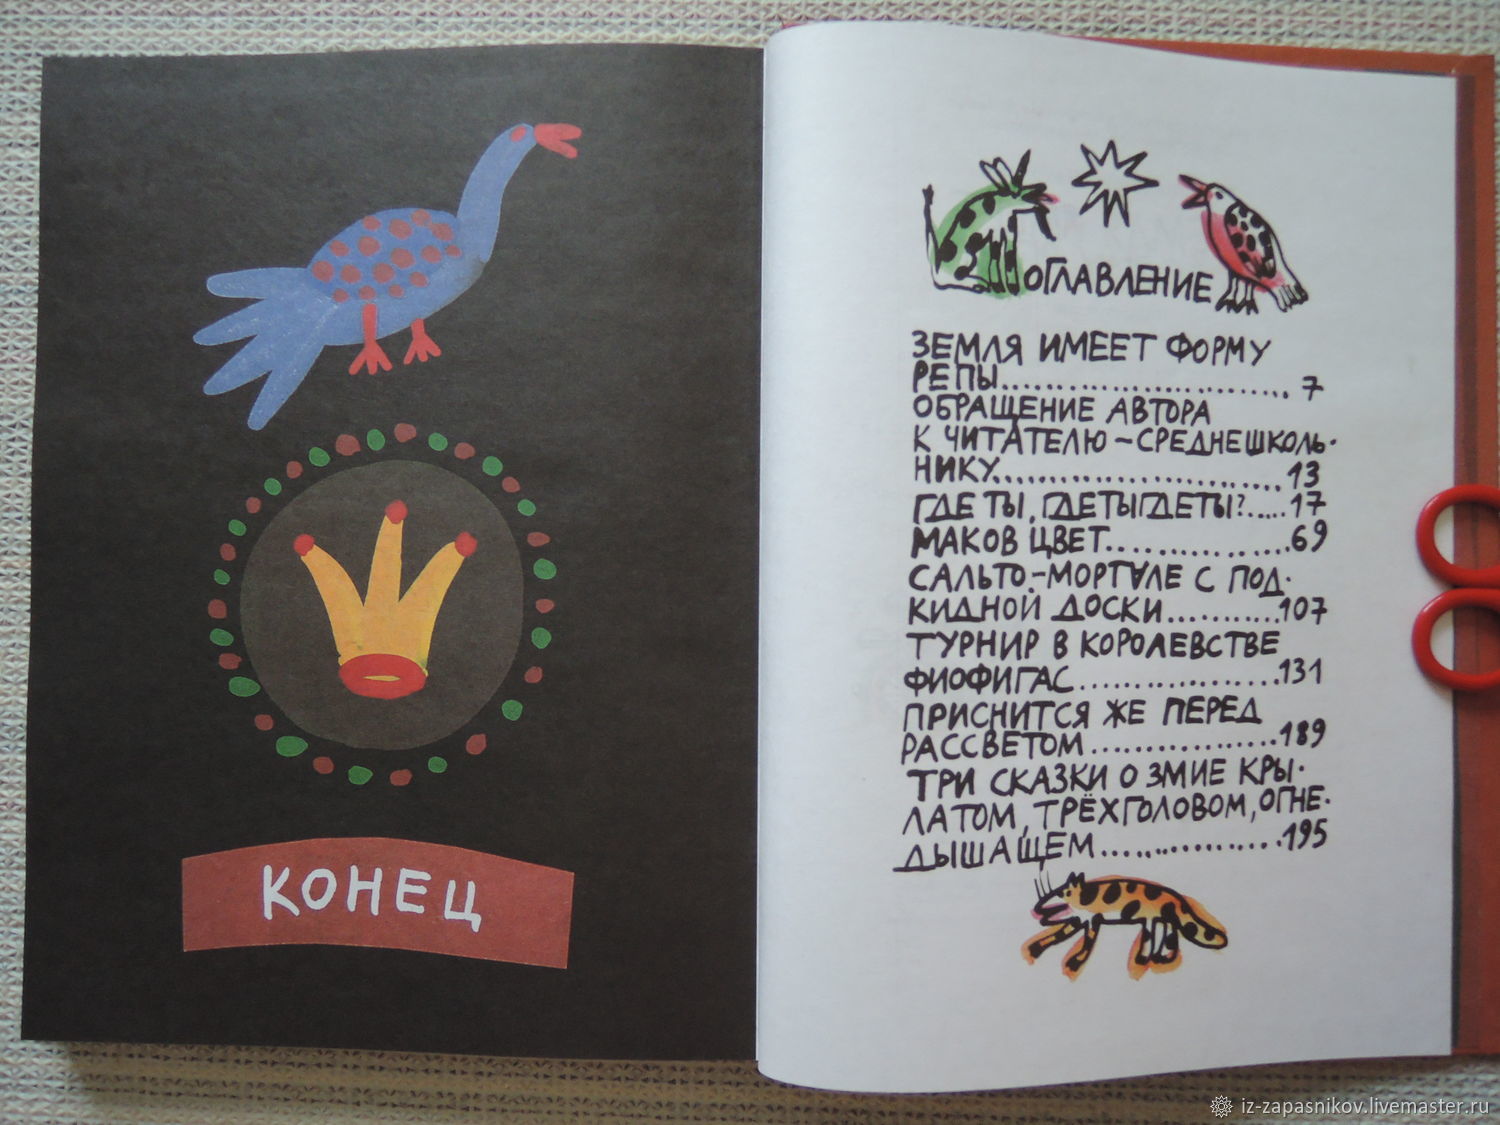 КОНЕЦ
ОГЛАВЛЕНИЕ
ЗЕМЛЯ ИМЕЕТ ФОРМУ
РЕПЫ.............................7
ОБРАЩЕНИЕ АВТОРА
К ЧИТАТЕЛЮ-СРЕДНЕШКОЛЬ-
НИКУ.............................13
ГДЕ ТЫ, ГДЕТЫГДЕТЫ?.....17
МАКОВ ЦВЕТ.................69
САЛЬТО-МОРТАЛЕ С ПОД-
КИДНОЙ ДОСКИ...........107
ТУРНИР В КОРОЛЕВСТВЕ
ФИОФИГАС..................131
ПРИСНИТСЯ ЖЕ ПЕРЕД
РАССВЕТОМ.................189
ТРИ СКАЗКИ О ЗМИЕ КРЫ-
ЛАТОМ, ТРЁХГОЛОВОМ, ОГНЕ-
ДЫШАЩЕМ.................195
iz-zapasnikov.livemaster.ru